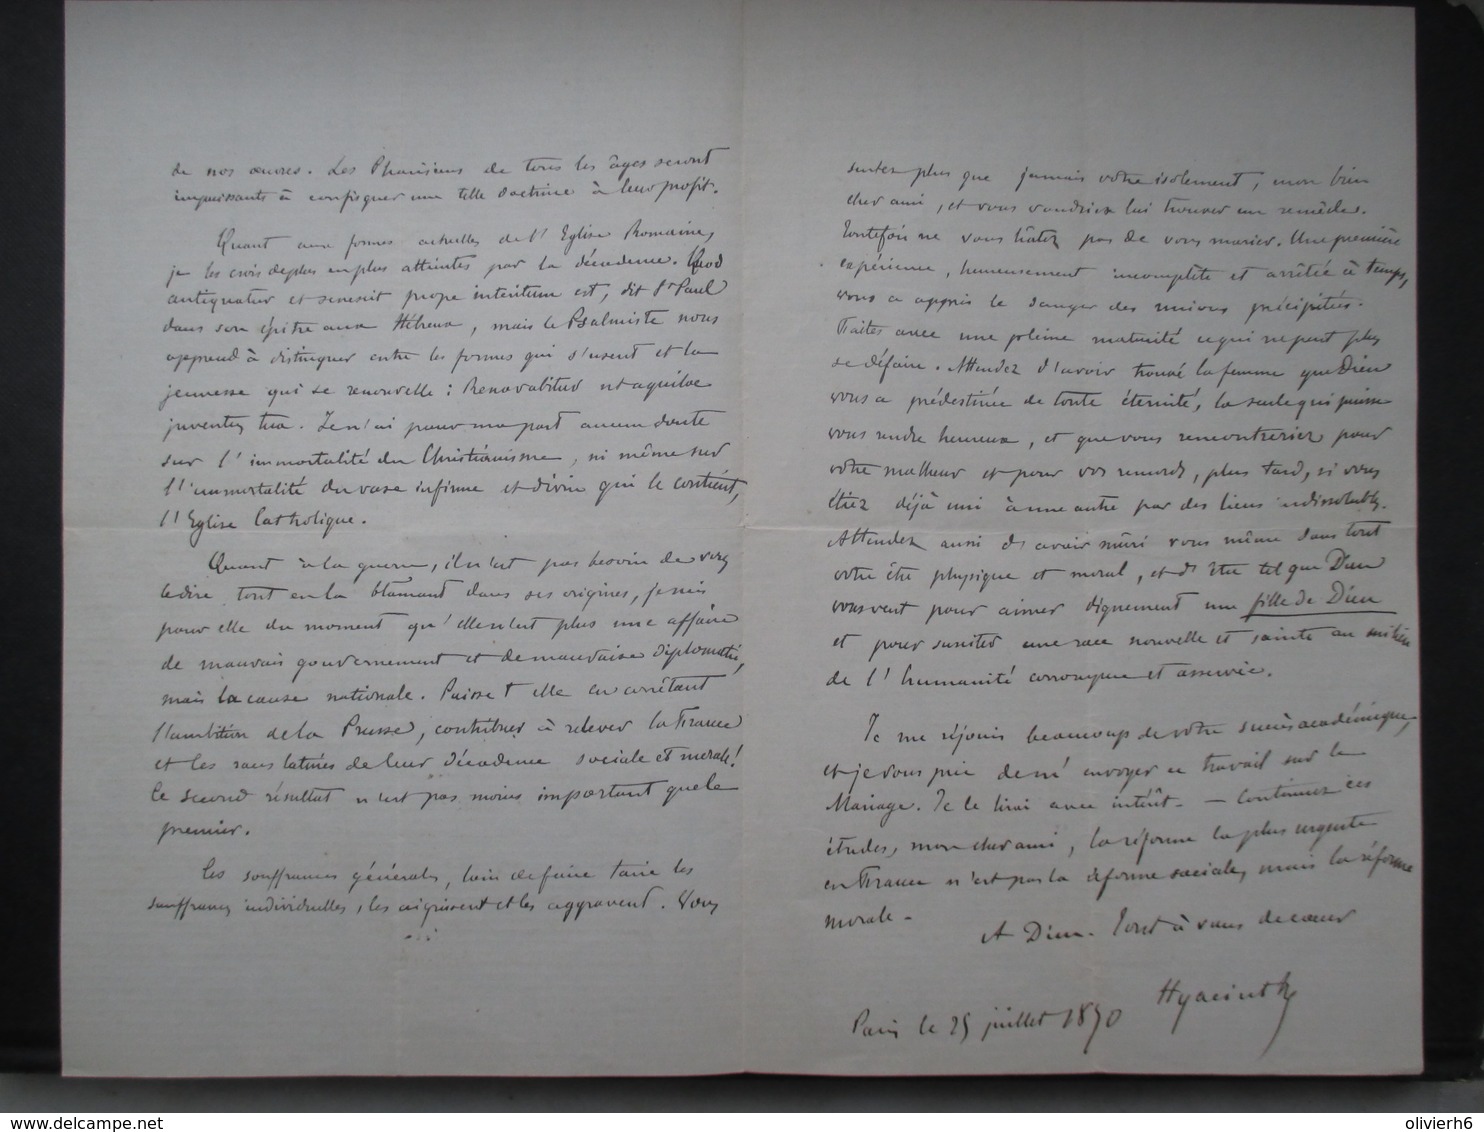 de nos œuvres. Les Pharisiens de tous les âges seront
impuissants à confisquer une telle doctrine à leur profit.
Quant aux formes actuelles de l'Eglise Romaine,
je les crois de plus en plus atteintes par la décadence. Quod
antiquatur et senescit prope interitum est, dit St Paul
dans son épitre aux Hébreux, mais le Psalmiste nous
apprend à distinguer entre les formes qui s'usent et la
jeunesse qui se renouvelle : Renovabitur ut aquilae
juventus tua. Je n'ai pour ma part aucun doute
sur l'immortalité du Christianisme, ni même sur
l'immortalité du vase infirme et divin qui le contient,
l'Eglise Catholique.
Quant à la guerre, il n'est pas besoin de vous
le dire, tout en la blâmant dans ses origines, je suis
pour elle du moment qu'elle n'est plus une affaire
de mauvais gouvernement et de mauvaise diplomatie,
mais la cause nationale. Puisse t elle en arrêtant
l'ambition de la Prusse, contribuer à relever la France
et les races latines de leur décadence sociale et morale!
Ce second résultat n'est pas moins important que le
premier.
Les souffrances générales, loin de faire taire les
souffrances individuelles, les aigrissent et les aggravent. Vous
sentez plus que jamais votre isolement, mon bien
cher ami, et vous voudriez lui trouver un remède.
Toutefois ne vous hâtez pas de vous marier. Une première
expérience, heureusement incomplète et arrêtée à temps,
vous a appris le danger des unions précipitées.
Faites avec une pleine maturité ce qui ne peut plus
se défaire. Attendez d'avoir trouvé la femme que Dieu
vous a prédestinée de toute éternité, la seule qui puisse
vous rendre heureux, et que vous rencontreriez pour
votre malheur et pour vos remords, plus tard, si vous
étiez déjà uni à une autre par des liens indissolubles.
Attendez aussi d'avoir mûri vous même dans tout
votre être physique et moral, et d'être tel que Dieu
vous veut pour aimer dignement une fille de Dieu
et pour susciter une race nouvelle et sainte au milieu
de l'humanité corrompue et asservie.
Je me réjouis beaucoup de votre succès académique,
et je vous prie de m'envoyer ce travail sur le
Mariage. Je le lirai avec intérêt. — Continuez ces
études, mon cher ami, la réforme la plus urgente
en France n'est pas la réforme sociale, mais la réforme
morale.
A Dieu. Tout à vous de cœur
Hyacinthe
Paris le 25 juillet 1870
delcampe.net
olivierh6